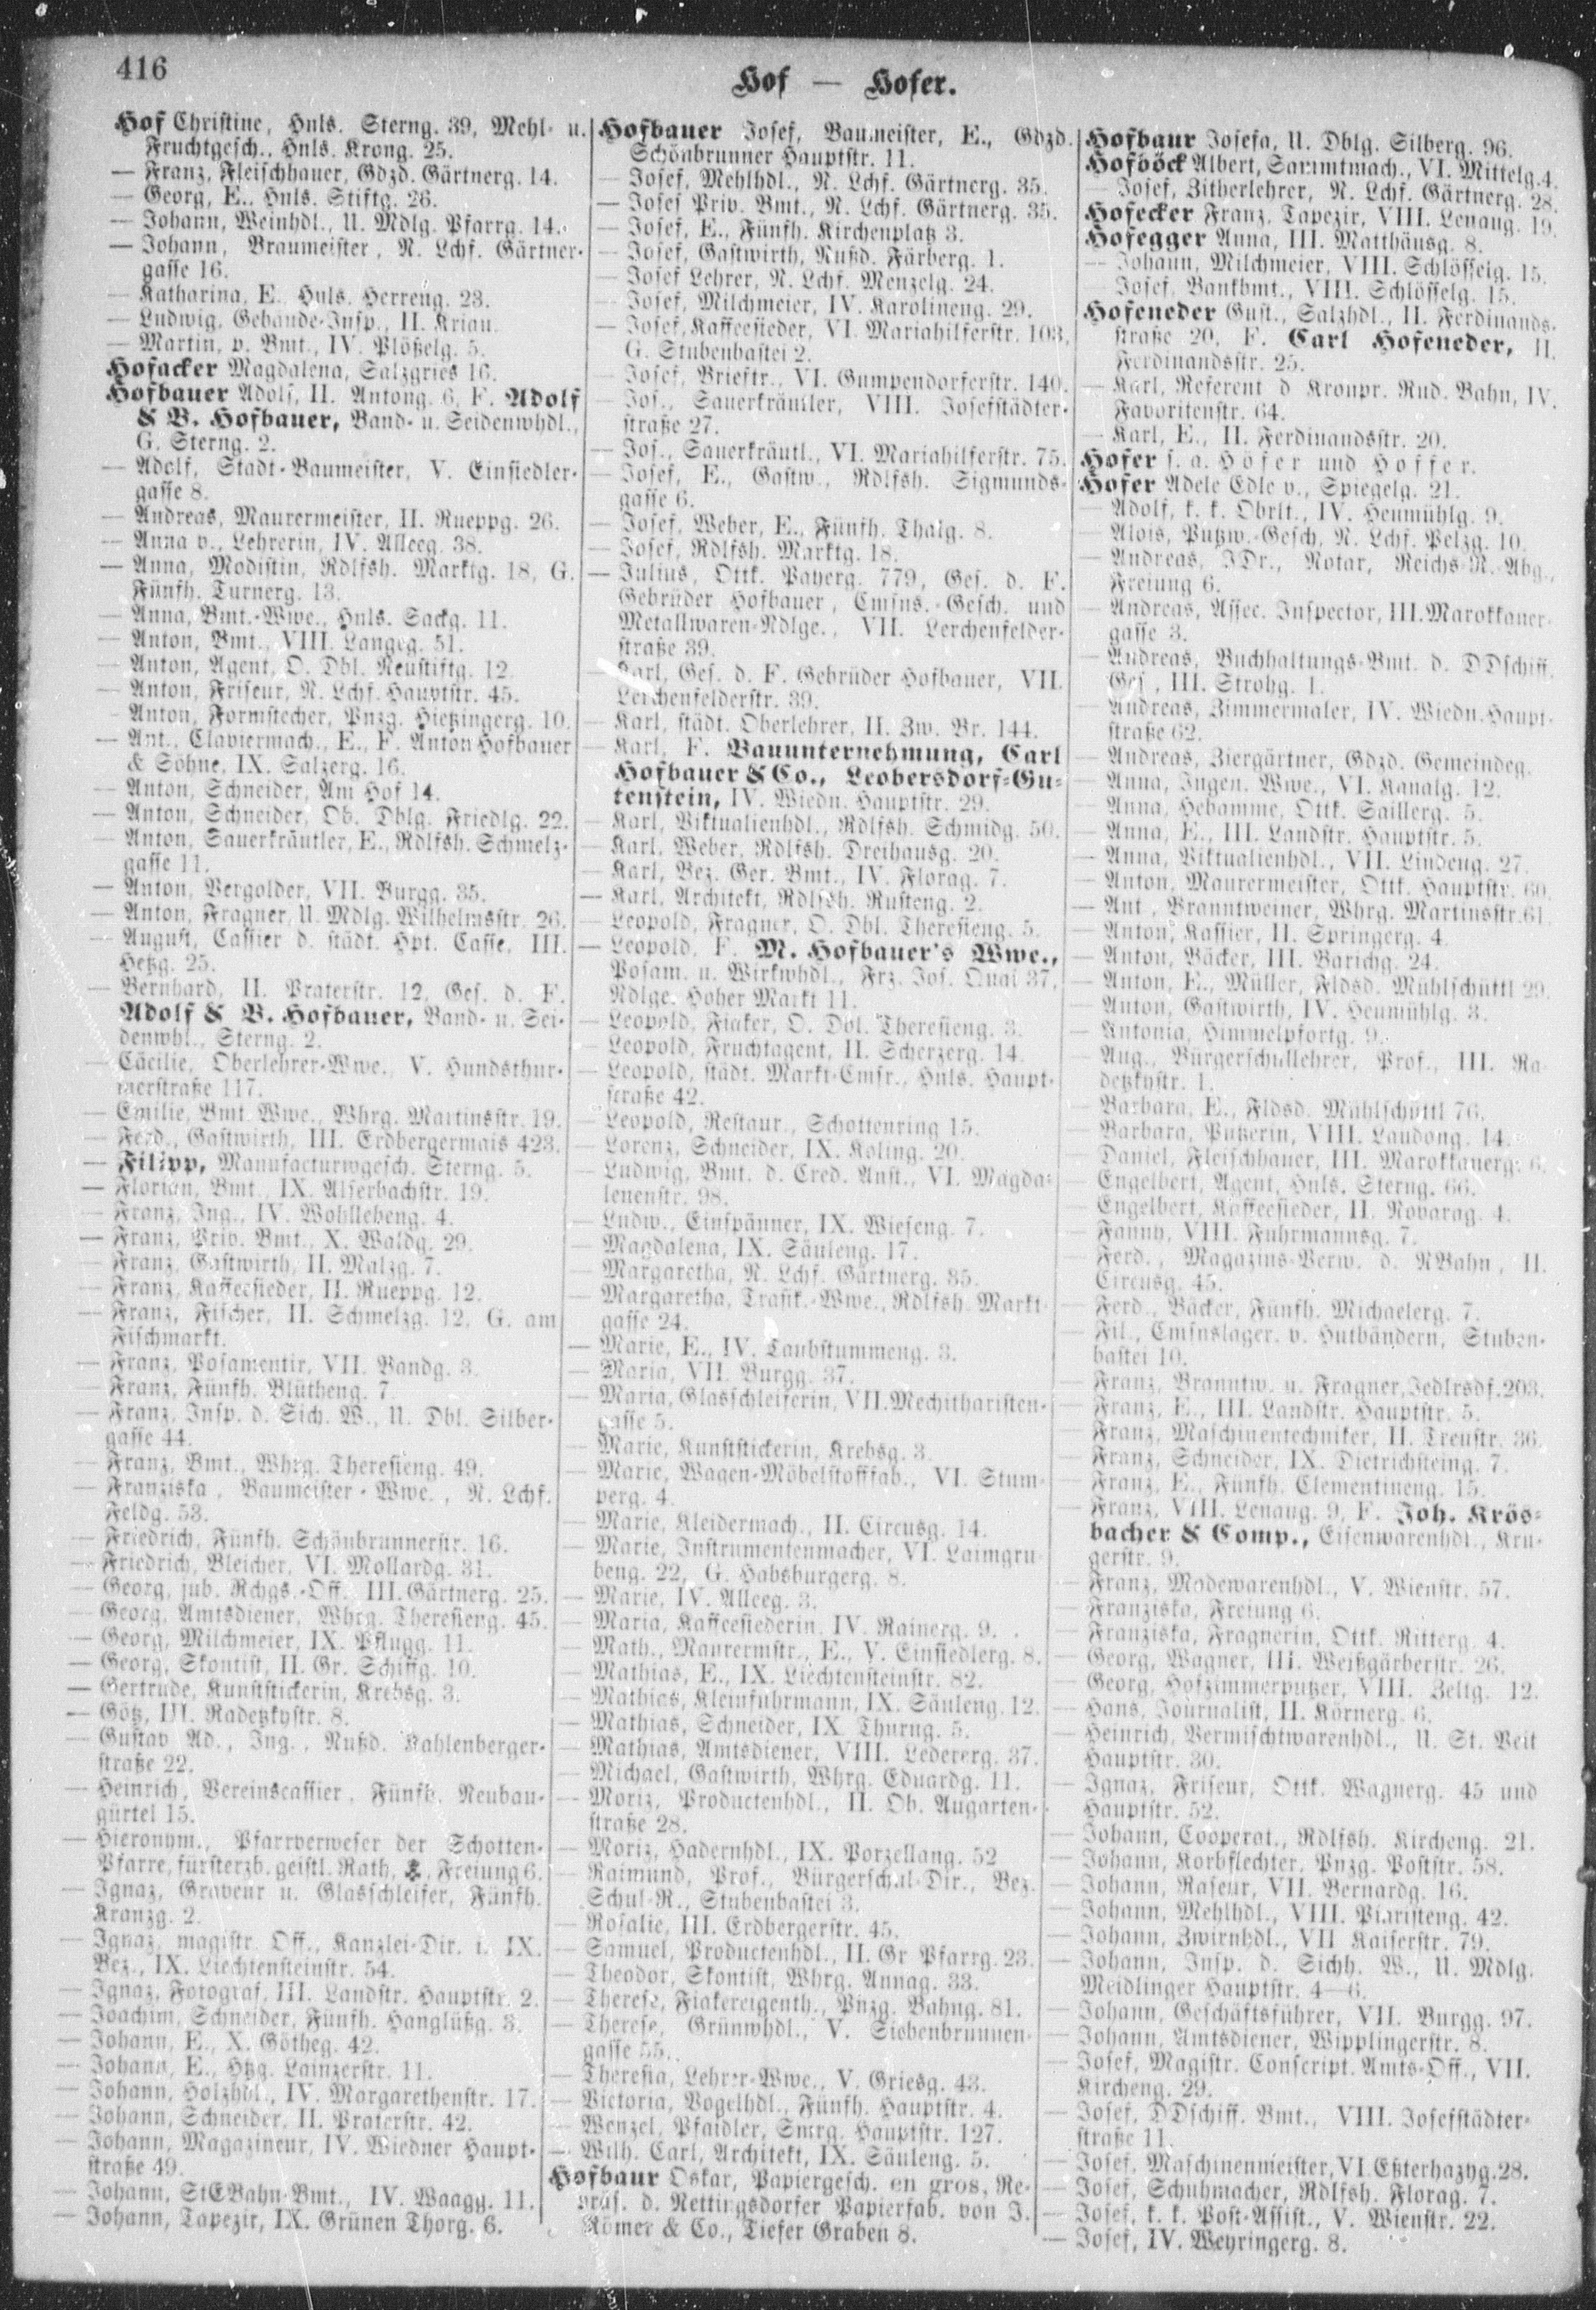 416
Hof — Hofer.
Hof Christine, Hnls. Sterng. 39, Mehl- u.
Fruchtgesch., Hnls. Krong. 25.
— Franz, Fleischhauer, Gdzd. Gärtnerg. 14.
— Georg, E., Hnls. Stiftg. 26.
— Johann, Weinhdl., U. Mdlg. Pfarrg. 14.
— Johann, Braumeister, N. Lchf. Gärtner-
gasse 16.
— Katharina, E. Hnls. Herreng. 23.
— Ludwig, Gebäude-Insp., II. Kriau.
— Martin, p. Bmt., IV. Plößelg. 5.
Hofacker Magdalena, Salzgries 16.
Hofbauer Adolf, II. Antong. 6, F. Adolf
& B. Hofbauer, Band- u. Seidenwhdl.,
G. Sterng. 2.
— Adolf, Stadt-Baumeister, V. Einsiedler-
gasse 8.
— Andreas, Maurermeister, II. Rueppg. 26.
— Anna v., Lehrerin, IV. Alleeg. 38.
— Anna, Modistin, Rdlfsh. Marktg. 18, G.
Fünfh. Turnerg. 13.
— Anna, Bmt.-Wwe., Hnls. Sackg. 11.
— Anton, Bmt., VIII. Langeg. 51.
— Anton, Agent, O. Dbl. Neustiftg. 12.
— Anton, Friseur, N. Lchf. Hauptstr. 45.
— Anton, Formstecher, Pnzg. Hietzingerg. 10.
— Ant., Claviermach., E., F. Anton Hofbauer
& Söhne, IX. Salzerg. 16.
— Anton, Schneider, Am Hof 14.
— Anton, Schneider, Ob. Dblg. Friedlg. 22.
— Anton, Sauerkräutler, E., Rdlfsh. Schmelz-
gasse 11.
— Anton, Vergolder, VII. Burgg. 35.
— Anton, Fragner, U. Mdlg. Wilhelmsstr. 26.
— August, Cassier d. städt. Hpt. Casse, III.
Hetzg. 25.
— Bernhard, II. Praterstr. 12, Ges. d. F.
Adolf & B. Hofbauer, Band- u. Sei-
denwhl., Sterng. 2.
— Cäcilie, Oberlehrer-Wwe., V. Hundsthur-
merstraße 117.
— Emilie, Bmt. Wwe., Whrg. Martinsstr. 19.
— Ferd., Gastwirth, III. Erdbergermais 423.
— Filipp, Manufacturwgesch. Sterng. 5.
— Florian, Bmt., IX. Alserbachstr. 19.
— Franz, Ing., IV. Wohllebeng. 4.
— Franz, Priv. Bmt., X. Waldg. 29.
— Franz, Gastwirth, II. Malzg. 7.
— Franz, Kaffeesieder, II. Rueppg. 12.
— Franz, Fischer, II. Schmelzg. 12, G. am
Fischmarkt.
— Franz, Posamentir, VII. Bandg. 3.
— Franz, Fünfh. Blütheng. 7.
— Franz, Insp. d. Sich. W., U. Dbl. Silber-
gasse 44.
— Franz, Bmt., Whrg. Theresieng. 49.
— Franziska, Baumeister-Wwe., N. Lchf.
Feldg. 53.
— Friedrich, Fünfh. Schönbrunnerstr. 16.
— Friedrich, Bleicher, VI. Mollardg. 31.
— Georg, jub. Rchgs.-Off. III. Gärtnerg. 25.
— Georg, Amtsdiener, Whrg. Theresieng. 45.
— Georg, Milchmeier, IX. Pflugg. 11.
— Georg, Skontist, II. Gr. Schiffg. 10.
— Gertrude, Kunststickerin, Krebsg. 3.
— Götz, III. Radetzkystr. 8.
— Gustav Ad., Ing., Nußd. Kahlenberger-
straße 22.
— Heinrich, Vereinscassier, Fünfh. Neubau-
gürtel 15.
— Hieronym., Pfarrverweser der Schotten-
Pfarre, fürsterzb. geistl. Rath, Freiung 6.
— Ignaz, Graveur u. Glasschleifer, Fünfh.
Kranzg. 2.
— Ignaz, magistr. Off., Kanzlei-Dir. i. IX.
Bez., IX. Liechtensteinstr. 54.
— Ignaz, Fotograf, III. Landstr. Hauptstr. 2.
— Joachim, Schneider, Fünfh. Hanglüßg. 3.
— Johann, E., X. Götheg. 42.
— Johann, E., Htzg. Lainzerstr. 11.
— Johann, Holzhdl., IV. Margarethenstr. 17.
— Johann, Schneider, II. Praterstr. 42.
— Johann, Magazineur, IV. Wiedner Haupt-
straße 49.
— Johann, StEBahn-Bmt., IV. Waagg. 11.
— Johann, Tapezir, IX. Grünen Thorg. 6.
Hofbauer Josef, Baumeister, E., Gdzd.
Schönbrunner Hauptstr. 11.
— Josef, Mehlhdl., N. Lchf. Gärtnerg. 35.
— Josef Priv. Bmt., N. Lchf. Gärtnerg. 35.
— Josef, E., Fünfh. Kirchenplatz 3.
— Josef, Gastwirth, Nußd. Färberg. 1.
— Josef Lehrer, N. Lchf. Menzelg. 24.
— Josef, Milchmeier, IV. Karolineng. 29.
— Josef, Kaffeesieder, VI. Mariahilferstr. 103,
G. Stubenbastei 2.
— Josef, Brieftr., VI. Gumpendorferstr. 140.
— Jos., Sauerkräutler, VIII. Josefstädter-
straße 27.
— Jos., Sauerkräutl., VI. Mariahilferstr. 75.
— Josef, E., Gastw., Rdlfsh. Sigmunds-
gasse 6.
— Josef, Weber, E., Fünfh. Thalg. 8.
— Josef, Rdlfsh. Marktg. 18.
— Julius, Ottk. Payerg. 779, Ges. d. F.
Gebrüder Hofbauer, Cmsns.-Gesch. und
Metallwaren-Ndlge., VII. Lerchenfelder-
straße 39.
— Karl, Ges. d. F. Gebrüder Hofbauer, VII.
Lerchenfelderstr. 39.
— Karl, städt. Oberlehrer, II. Zw. Br. 144.
— Karl, F. Bauunternehmung, Carl
Hofbauer & Co., Leobersdorf-Gu-
tenstein, IV. Wiedn. Hauptstr. 29.
— Karl, Viktualienhdl., Rdlfsh. Schmidg. 50.
— Karl, Weber, Rdlfsh. Dreihausg. 20.
— Karl, Bez. Ger. Bmt., IV. Florag. 7.
— Karl, Architekt, Rdlfsh. Rusteng. 2.
— Leopold, Fragner, O. Dbl. Theresieng. 5.
— Leopold, F. M. Hofbauer's Wwe.,
Posam. u. Wirkwhdl., Frz. Jos. Quai 37,
Ndlge. Hoher Markt 11.
— Leopold, Fiaker, O. Dbl. Theresieng. 3.
— Leopold, Fruchtagent, II. Scherzerg. 14.
— Leopold, städt. Markt-Cmsr., Hnls. Haupt-
straße 42.
— Leopold, Restaur., Schottenring 15.
— Lorenz, Schneider, IX. Koling. 20.
— Ludwig, Bmt. d. Cred. Anst., VI. Magda-
lenenstr. 98.
— Ludw., Einspänner, IX. Wieseng. 7.
— Magdalena, IX. Säuleng. 17.
— Margaretha, N. Lchf. Gärtnerg. 35.
— Margaretha, Trafik.-Wwe., Rdlfsh. Markt-
gasse 24.
— Marie, E., IV. Taubstummeng. 3.
— Maria, VII. Burgg. 37.
— Maria, Glasschleiferin, VII. Mechitharisten-
gasse 5.
— Marie, Kunststickerin, Krebsg. 3.
— Marie, Wagen-Möbelstofffab., VI. Stum-
perg. 4.
— Marie, Kleidermach., II. Circusg. 14.
— Marie, Instrumentenmacher, VI. Laimgru-
beng. 22, G. Habsburgerg. 8.
— Marie, IV. Alleeg. 3.
— Maria, Kaffeesiederin, IV. Rainerg. 9.
— Math., Maurermstr., E., V. Einsiedlerg. 8.
— Mathias, E., IX. Liechtensteinstr. 82.
— Mathias, Kleinfuhrmann, IX. Säuleng. 12.
— Mathias, Schneider, IX. Thurng. 5.
— Mathias, Amtsdiener, VIII. Ledererg. 37.
— Michael, Gastwirth, Whrg. Eduardg. 11.
— Moriz, Productenhdl., II. Ob. Augarten-
straße 28.
— Moriz, Hadernhdl., IX. Porzellang. 52
— Raimund, Prof., Bürgerschul-Dir., Bez.
Schul-R., Stubenbastei 3.
— Rosalie, III. Erdbergerstr. 45.
— Samuel, Productenhdl., II. Gr. Pfarrg. 23.
— Theodor, Skontist, Whrg. Annag. 33.
— Therese, Fiakereigenth., Pnzg. Bahng. 81.
— Therese, Grünwhdl., V. Siebenbrunnen-
gasse 55.
— Theresia, Lehrer-Wwe., V. Griesg. 43.
— Victoria, Vogelhdl., Fünfh. Hauptstr. 4.
— Wenzel, Pfaidler, Smrg. Hauptstr. 127.
— Wilh. Carl, Architekt, IX. Säuleng. 5.
Hofbaur Oskar, Papiergesch. en gros, Re-
präs. d. Nettingsdorfer Papierfab. von J.
Römer & Co., Tiefer Graben 8.
Hofbaur Josefa, U. Dblg. Silberg. 96.
Hofböck Albert, Sammtmach., VI. Mittelg. 4.
— Josef, Zitherlehrer, N. Lchf. Gärtnerg. 28.
Hofecker Franz, Tapezir, VIII. Lenaug. 19.
Hofegger Anna, III. Matthäusg. 8.
— Johann, Milchmeier, VIII. Schlösselg. 15.
— Josef, Bankbmt., VIII. Schlösselg. 15.
Hofeneder Gust., Salzhdl., II. Ferdinands-
straße 20, F. Carl Hofeneder, II.
Ferdinandsstr. 25.
— Karl, Referent d Kronpr. Rud. Bahn, IV.
Favoritenstr. 64.
— Karl, E., II. Ferdinandsstr. 20.
Hofer s. a. Höfer und Hoffer.
Hofer Adele Edle v., Spiegelg. 21.
— Adolf, k. k. Obrlt., IV. Heumühlg. 9.
— Alois, Putzw.-Gesch, N. Lchf. Pelzg. 10.
— Andreas, JDr., Notar, Reichs-R.-Abg.,
Freiung 6.
— Andreas, Assec. Inspector, III. Marokkaner-
gasse 3.
— Andreas, Buchhaltungs-Bmt. d. DDschiff.
Ges., III. Strohg. 1.
— Andreas, Zimmermaler, IV. Wiedn. Haupt-
straße 62.
— Andreas, Ziergärtner, Gdzd. Gemeindeg.
— Anna, Ingen. Wwe., VI. Kanalg. 12.
— Anna, Hebamme, Ottk. Saillerg. 5.
— Anna, E., III. Landstr. Hauptstr. 5.
— Anna, Viktualienhdl., VII. Lindeng. 27.
— Anton, Maurermeister, Ottk. Hauptstr. 60.
— Ant., Branntweiner, Whrg. Martinsstr. 61.
— Anton, Kassier, II. Springerg. 4.
— Anton, Bäcker, III. Barichg. 24.
— Anton, E., Müller, Fldsd. Mühlschüttl 29.
— Anton, Gastwirth, IV. Heumühlg. 3.
— Antonia, Himmelpfortg. 9.
— Aug., Bürgerschullehrer, Prof., III. Ra-
detzkystr. 1.
— Barbara, E., Fldsd. Mühlschüttl 76.
— Barbara, Putzerin, VIII. Laudong. 14.
— Daniel, Fleischhauer, III. Marokkanerg. 6.
— Engelbert, Agent, Hnls. Sterng. 66.
— Engelbert, Kaffeesieder, II. Novarag. 4.
— Fanny, VIII. Fuhrmannsg. 7.
— Ferd., Magazins-Verw. d. NBahn, II.
Circusg. 45.
— Ferd., Bäcker, Fünfh. Michaelerg. 7.
— Fil., Cmsnslager. v. Hutbändern, Stuben-
bastei 10.
— Franz, Branntw. u. Fragner, Jedlrsdf. 203.
— Franz, E., III. Landstr. Hauptstr. 5.
— Franz, Maschinentechniker, II. Treustr. 36.
— Franz, Schneider, IX. Dietrichsteing. 7.
— Franz, E., Fünfh. Clementineng. 15.
— Franz, VIII. Lenaug. 9, F. Joh. Krös-
bacher & Comp., Eisenwarenhdl., Kru-
gerstr. 9.
— Franz, Modewarenhdl., V. Wienstr. 57.
— Franziska, Freiung 6.
— Franziska, Fragnerin, Ottk. Ritterg. 4.
— Georg, Wagner, III. Weißgärberstr. 26.
— Georg, Hofzimmerputzer, VIII. Zeltg. 12.
— Hans, Journalist, II. Körnerg. 6.
— Heinrich, Vermischtwarenhdl., U. St. Veit
Hauptstr. 30.
— Ignaz, Friseur, Ottk. Wagnerg. 45 und
Hauptstr. 52.
— Johann, Cooperat., Rdlfsh. Kircheng. 21.
— Johann, Korbflechter, Pnzg. Poststr. 58.
— Johann, Raseur, VII. Bernardg. 16.
— Johann, Mehlhdl., VIII. Piaristeng. 42.
— Johann, Zwirnhdl., VII Kaiserstr. 79.
— Johann, Insp. d. Sichh. W., U. Mdlg.
Meidlinger Hauptstr. 4—6.
— Johann, Geschäftsführer, VII. Burgg. 97.
— Johann, Amtsdiener, Wipplingerstr. 8.
— Josef, Magistr. Conscript. Amts-Off., VII.
Kircheng. 29.
— Josef, DDschiff. Bmt., VIII. Josefstädter-
straße 11.
— Josef, Maschinenmeister, VI. Eßterhazyg. 28.
— Josef, Schuhmacher, Rdlfsh. Florag. 7.
— Josef, k. k. Post-Assist., V. Wienstr. 22.
— Josef, IV. Weyringerg. 8.